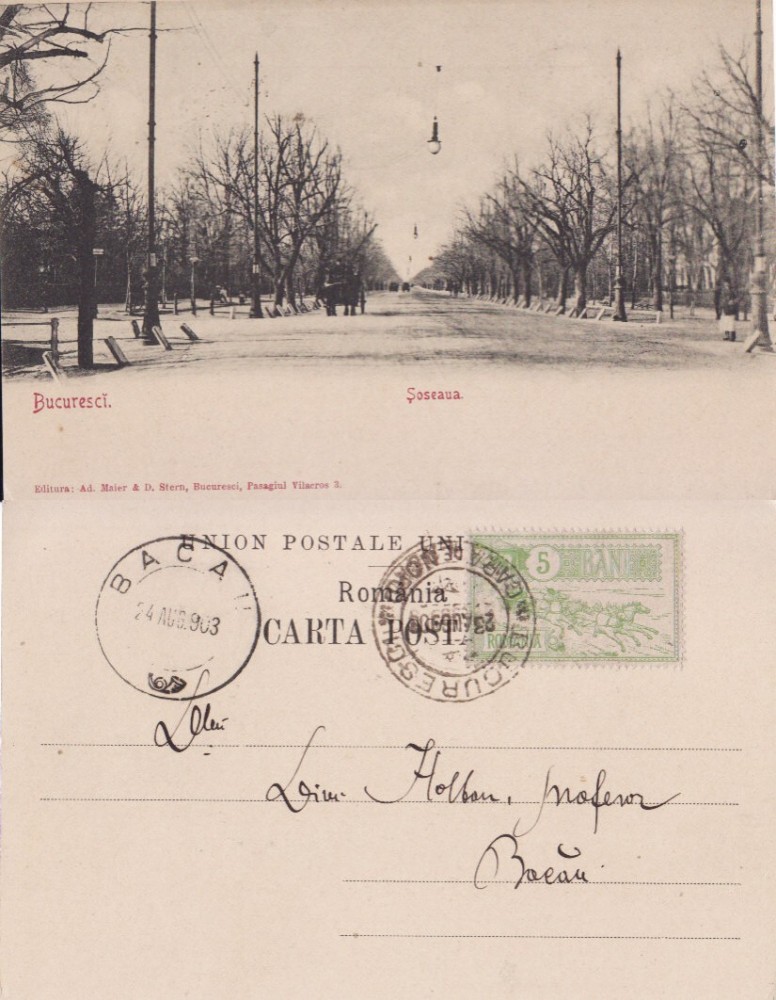 Bucurescĭ. Șoseaua.
Editura: Ad. Maier & D. Stern, Bucuresci, Pasagiul Vilacros 3.
UNION POSTALE UNI
România
CARTA POSTA
BACAU
24 AUG. 903
BUCURESCI GARA DE NORD
23 AUG
5 BANI
ROMANIA
Dlui
Dim. Holban, profesor
Bacău